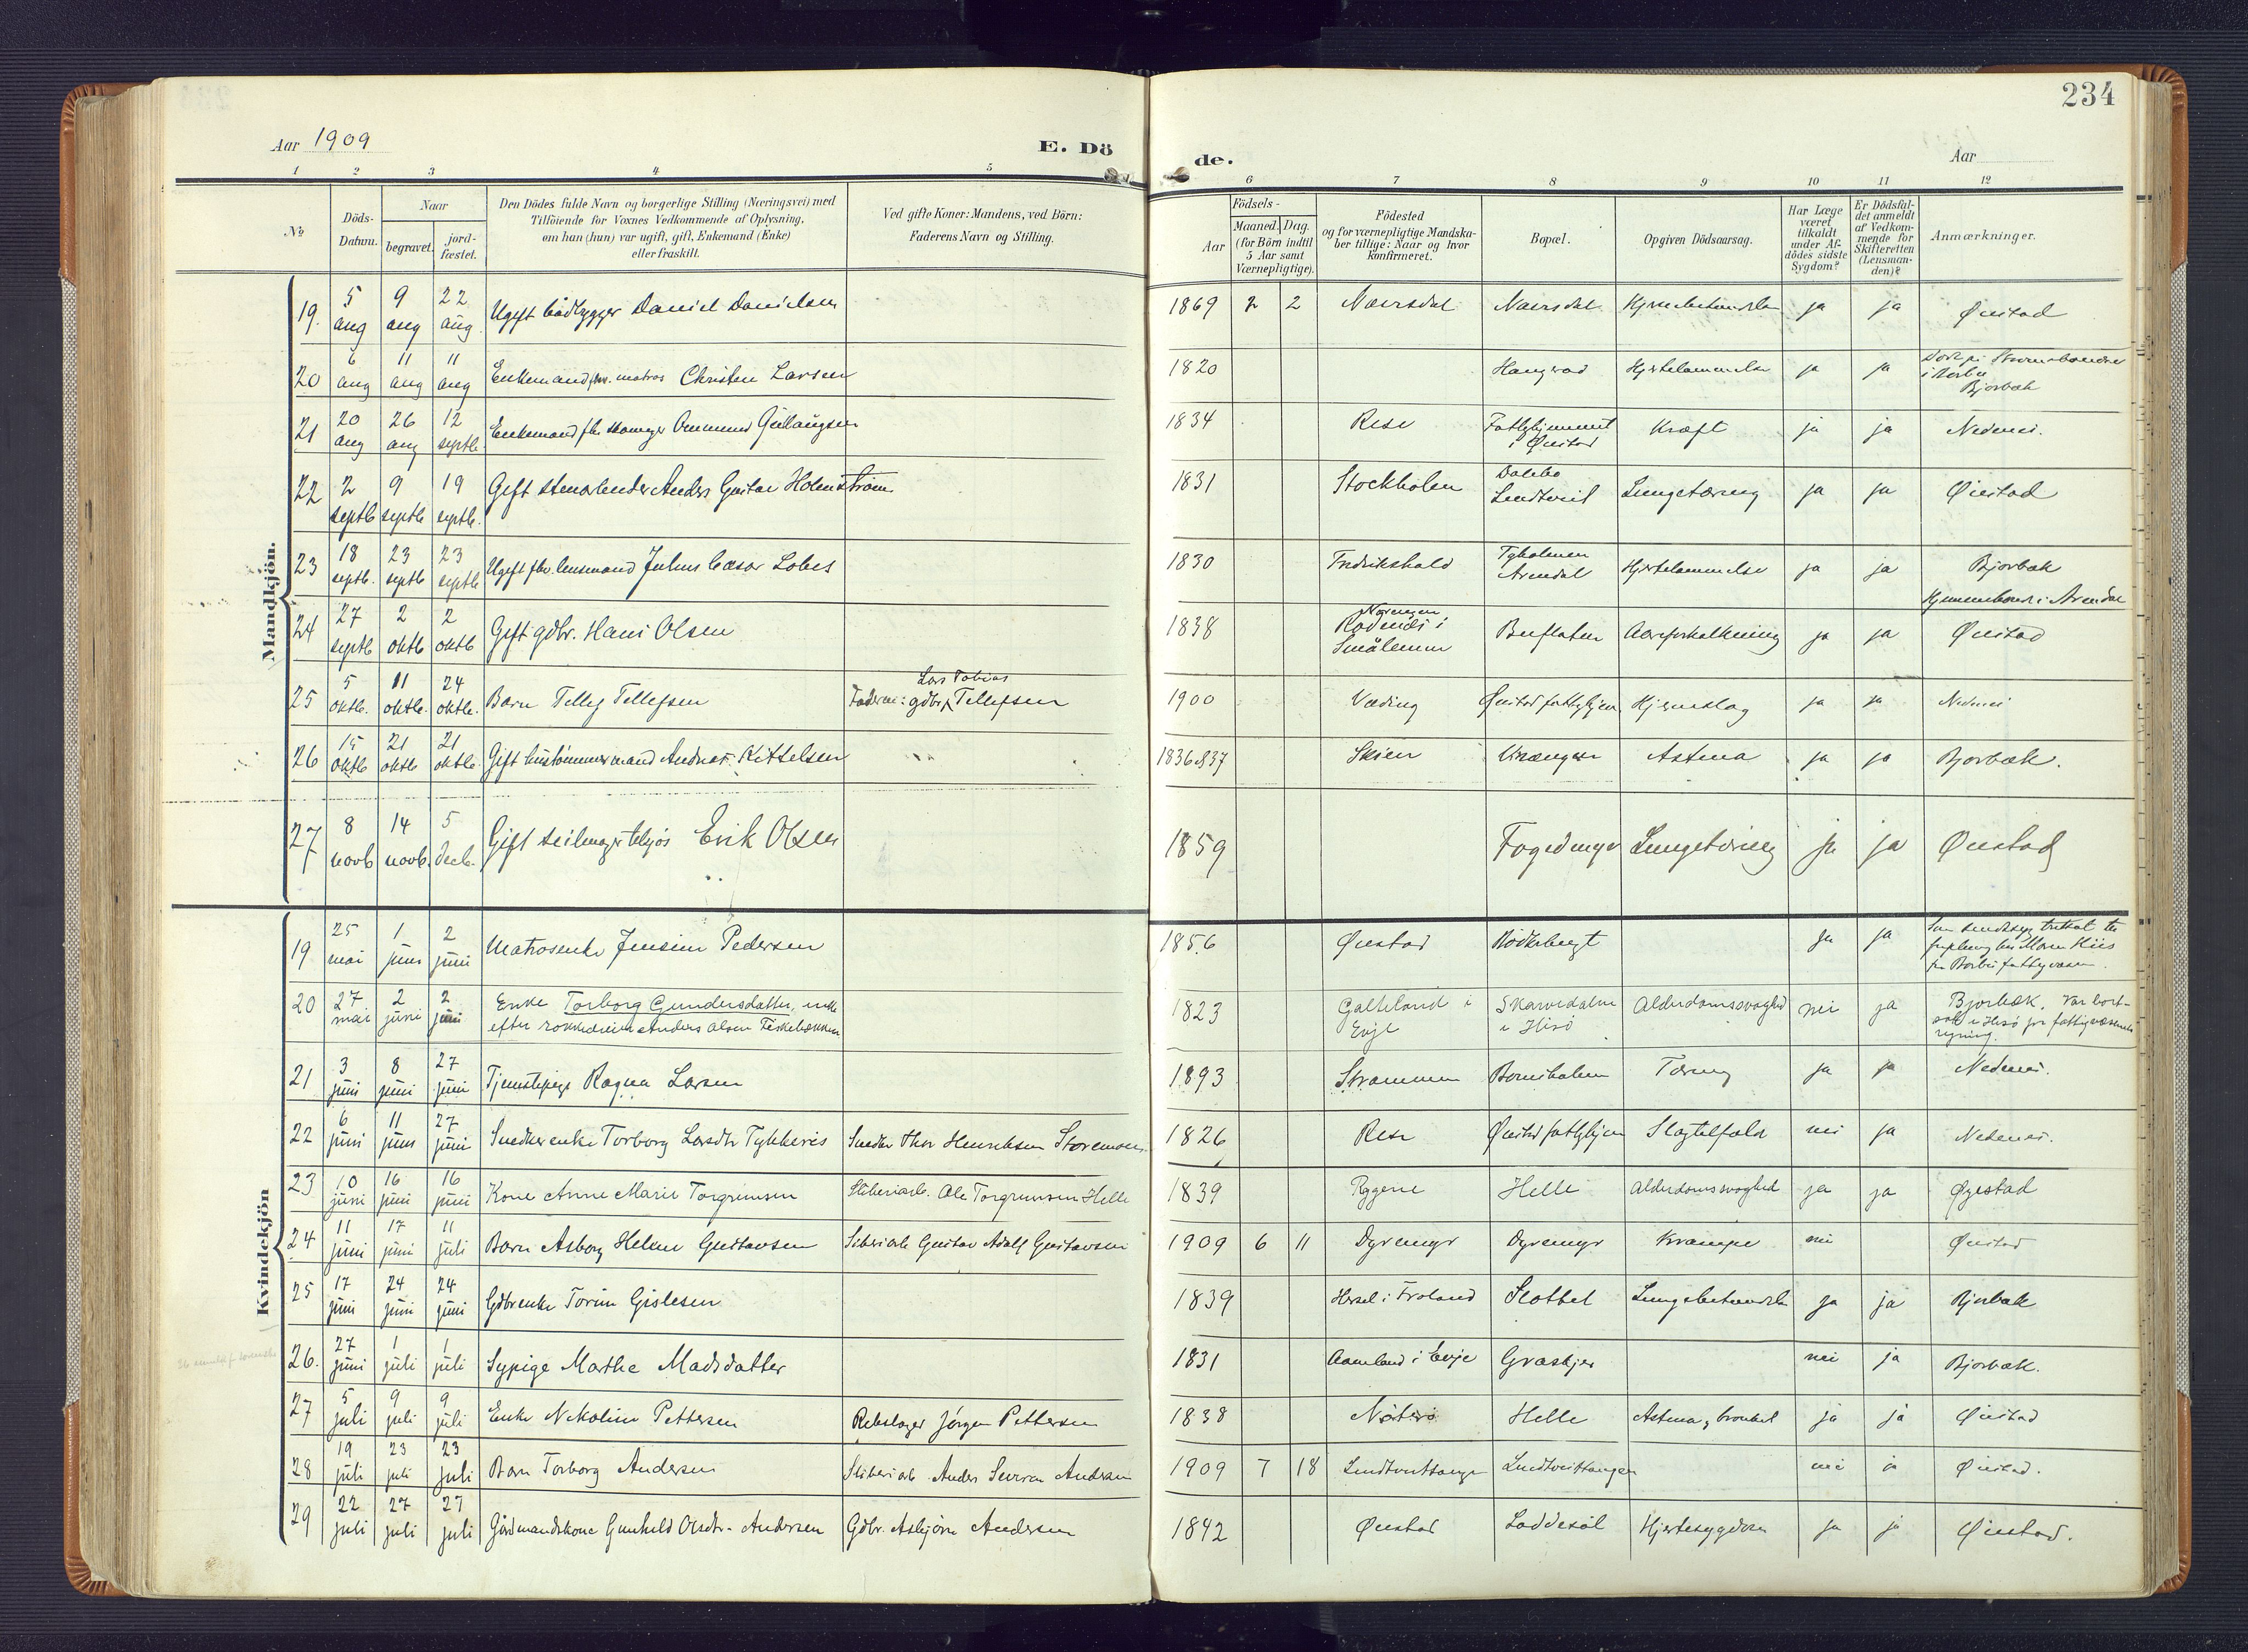 234
Aar 1909
E. Dö
de.
Aar
1 2 3 4 5 6 7 8 9 10 11 12
№
Döds-Datum.
Naar
begravet.
jord-fæstet.
Den Dödes fulde Navn og borgerlige Stilling (Næringsvei) med
Tilföiende for Voxnes Vedkommende af Oplysning,
om han (hun) var ugift, gift, Enkemand (Enke)
eller fraskilt.
Ved gifte Koner: Mandens, ved Börn:
Faderens Navn og Stilling.
Födsels-
Aar
Maaned. Dag.
(for Börn indtil
5 Aar samt
Værnepligtige).
Födested
og for værnepligtige Mandska-
ber tillige: Naar og hvor
konfirmeret.
Bopæl.
Opgiven Dödsaarsag.
Har Læge
været
tilkaldt
under Af-
dödes sidste
Sygdom?
Er Dödsfal-
det anmeldt
af Vedkom-
mende for
Skifteretten
(Lensman-
den)?
Anmærkninger.
Mandkjön.
19. 5 aug 9 aug 22 aug. Ugift bådbygger Daniel Danielsen 1869 2 2 Næversdal Næversdal ja ja Øiestad
20 6 aug 11 aug 11 aug Enkemand fhv. matros Christen Larsen 1820 Hjertelammelse ja ja Bjorbæk
21 20 aug 26 aug 12 septb. Enkemand fhv Ommund Gullaugsen 1834 Rise Fattighjemmet i Øiestad Kræft ja ja Nedenes.
22 2 septb 9 septb 19 septb. Gift Anders Gustav Holmström 1831 Stockholm Lungetæring ja ja Øiestad
23 18 septb. 23 septb 23 septb Ugift fhv. lensmand Julius Cæsar Lobes 1830 Fredrikshald Tyholmen Arendal Hjertelammelse ja ja Bjorbæk
24 27 septb 2 oktb 2 oktb Gift gdbr. Hans Olsen 1838 Rødenes i Smålenene Aareforkalkning ja ja Øiestad
25 5 oktb. 11 oktb. 24 oktb. Barn Tellef Tellefsen Faderen: gdbr. Lars Tobias Tellefsen 1900 Væding Øiestad fattighjem Hjerneslag ja ja Nedenes
26 15 oktb 21 oktb 21 oktb. Gift hustømmermand Andreas Kittelsen 1836 à 37 Skien Astma ja ja Bjorbæk.
27 8 novb 14 novb. 5 decb. Gift seilmager tilsjøs Erik Olsen 1859 Fogedmyr Lungetæring ja ja Øiestad
Kvindekjön
19 25 mai 1 juni 2 juni Matrosenke Jensine Pedersen 1856 Øiestad ja ja
20 27 mai 2 juni 2 juni Enke Torborg Gundersdatter, enke
efter Anders Olsen Fiskebækken 1823 Galteland i Evje Skarvedalen i Hisö Alderdomssvaghed nei ja Bjorbæk. Var bort-
sat i Hisö for fattigvæsenets
regning.
21 3 juni 8 juni 27 juni Tjenestepige Ragna Larsen 1893 Strømmen Bornsholmen Tæring ja ja Nedenes.
22 6 juni 11 juni 27 juni Snedkerenke Torborg Larsdtr Snedker Thor Henriksen 1826 Rise Øiestad fattighjem Slagtilfælde nei ja Nedenes.
23 10 juni 16 juni 16 juni Kone Anne Marie Torgrimsen Sliberiarb. Ole Torgrimsen Helle 1839 Rygene Helle Alderdomssvaghed ja ja Øyestad
24 11 juni 17 juni 11 juli Barn Asborg Helene Gustavsen Sliberiarb Gustav Adolf Gustavsen 1909 6 11 Dyremyr Dyremyr Krampe nei Øiestad
25 17 juni 24 juni 24 juni Gdbrenke Torine Gislesen 1839 Hesel i Froland Slottet Lungebetændelse ja ja Bjorbæk
26. 27 juni 1 juli 1 juli Sypige Marthe Madsdatter 1831 Aamland i Evje Græskjær nei ja Bjorbæk.
27 5 juli 9 juli 9 juli Enke Nikoline Pettersen Rebslager Jörgen Pettersen 1838 Nøterø Helle Astma og bronkit ja ja Øiestad
28 19 juli 23 juli 23 juli Barn Torborg Andersen Sliberiarb. Anders Andersen 1909 7 18 Lundtveittangen Lundtveittangen nei ja Øiestad.
29 22 juli 27 juli 27 juli Gårdmandskone Gunhild Olsdtr. Andersen Gdbr. Asbjörn Andersen 1842 Øiestad Løddesøl Hjertesygdom ja ja Øiestad.